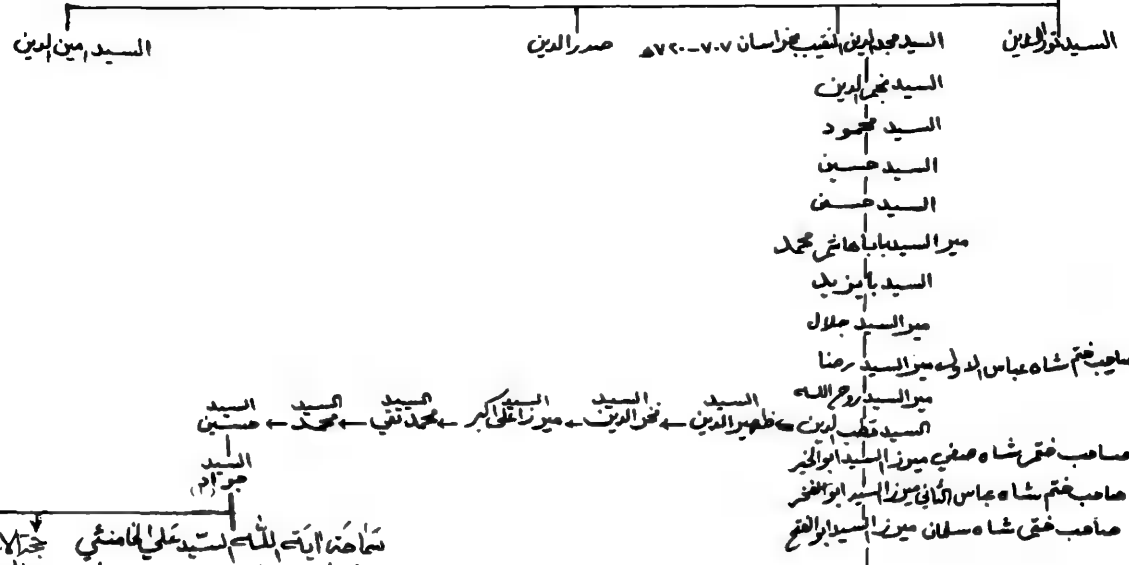 السيد نورالدين السيد مجدالدين النقيب بخراسان ٧٠٧-٧٢٠هـ صدرالدين السيد امين الدين
السيد نجم الدين
السيد محمود
السيد حسين
السيد حسن
مير السيد بابا هاشم محمد
السيد بايزيد
مير السيد جلال
صاحب ختم شاه عباس الاول مير السيد رضا
مير السيد روح الله
السيد قطب الدين ← السيد ظهير الدين ← السيد فخر الدين ← السيد ميرزا علي اكبر ← السيد محمد تقي ← السيد محمد ← السيد حسين
صاحب ختم شاه صفي ميرزا السيد ابوالخير
السيد جواد (٣)
صاحب ختم شاه عباس الثاني ميرزا السيد ابوالفخر
صاحب ختم شاه سلمان ميرزا السيد ابوالفتح
سماحة آية الله السيد علي الخامنئي